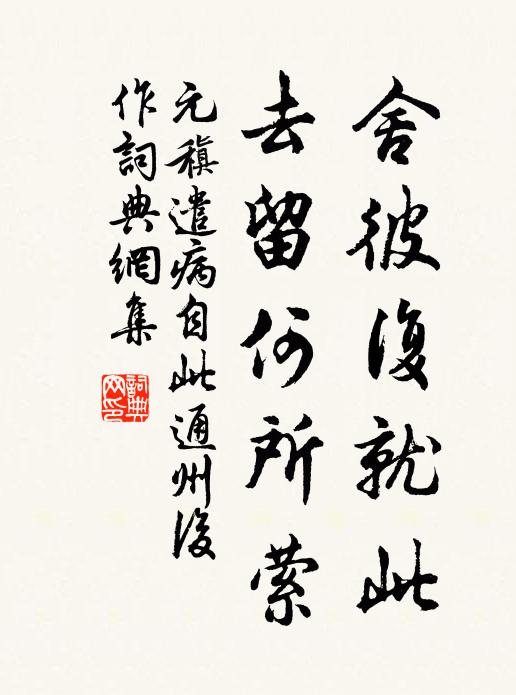 舍彼復就此
去留何所縈
元稹遣病自此通州後
作詞典網集
詞典網印